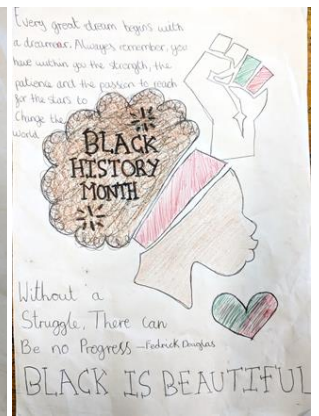 Every great dream begins with
a dreamer. Always remember, you
have within you the strength, the
patience and the passion to reach
for the stars to
Change the
world.
BLACK
HISTORY
MONTH
Without a
Struggle, There can
Be no Progress - Fedrick Douglas
BLACK IS BEAUTIFUL